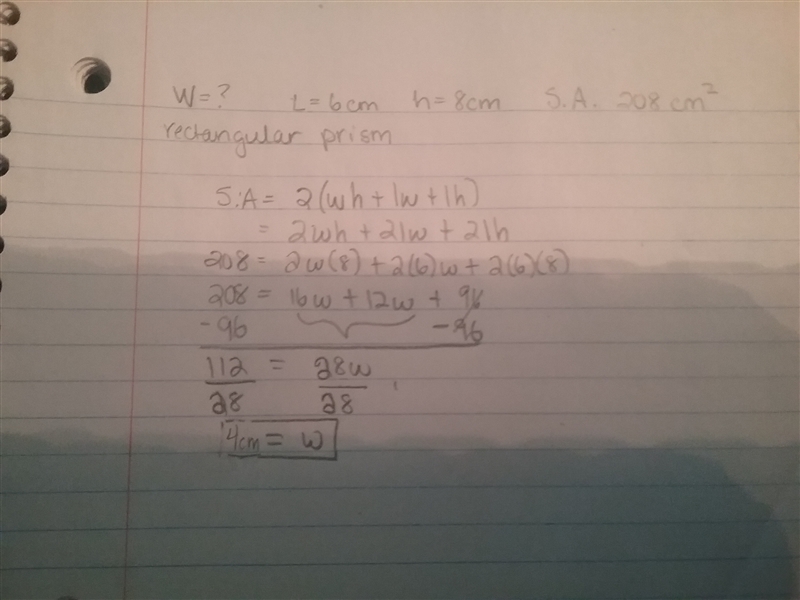 W=? L=6cm h=8cm S.A. 208 cm²
rectangular prism
S.A= 2(wh+lw+lh)
= 2wh+2lw+2lh
208= 2w(8)+2(6)w+2(6)(8)
208= 16w+12w+96
-96 -96
112 = 28w
28 28
4cm= w